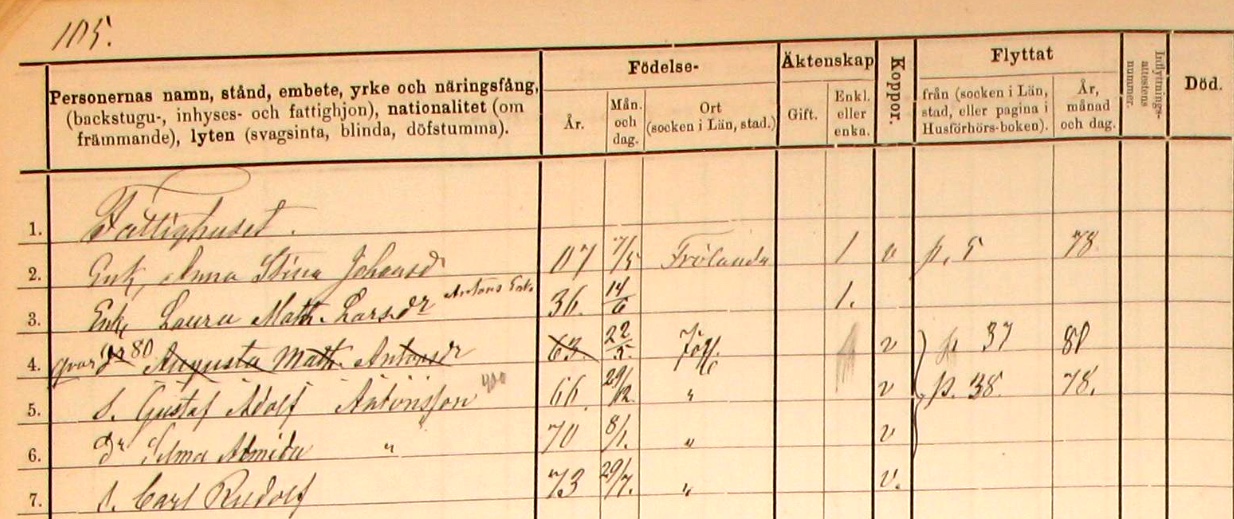 105.
Personernas namn, stånd, embete, yrke och näringsfång, (backstugu-, inhyses- och fattighjon), nationalitet (om främmande), lyten (svagsinta, blinda, döfstumma).
Födelse-
År.
Mån. och dag.
Ort (socken i Län, stad.)
Äktenskap
Gift.
Enkl. eller enka.
Koppor.
Flyttat
från (socken i Län, stad, eller pagina i Husförhörs-boken).
År, månad och dag.
Inflyttnings-attestens nummer.
Död.
1. Fattighuset.
2. Enk, Anna Stina Johansd 07 7/5 Frölanda 1 v p. 5 78
3. Enk, Laura Math. Larsdr Antons Enk. 36. 14/6 1.
4. qvar dr 80 Augusta Math. Antonsdr 63 22/5. v p 37 80
5. s. Gustaf Adolf Antonsson 66 29/12 " v p. 38. 78.
6. Dr Selma Almida " 70 8/1. " v
7. s. Carl Rudolf 73 29/7. " v.